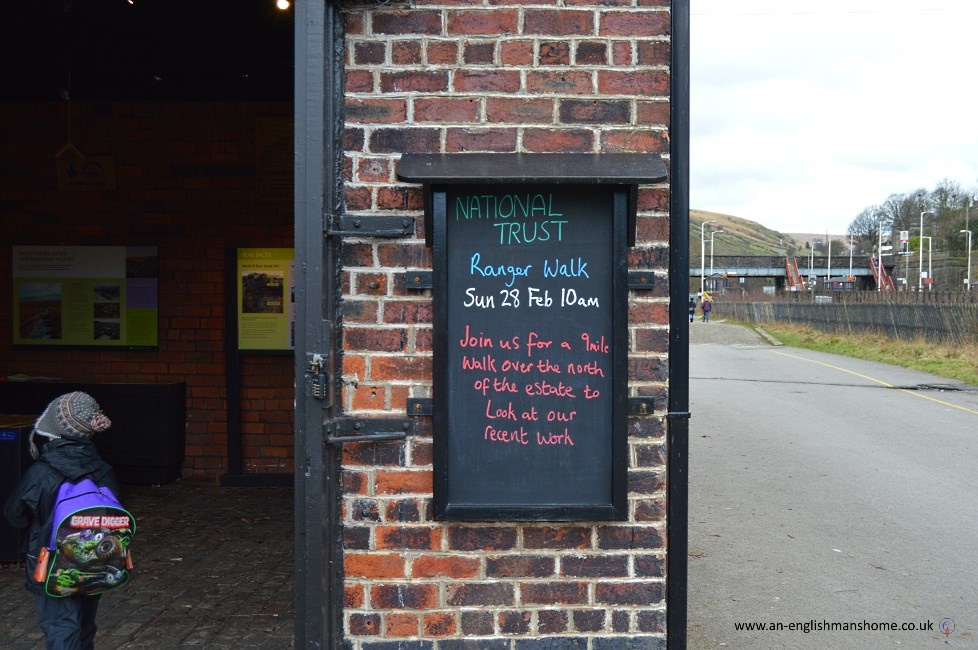 NATIONAL
TRUST
Ranger Walk
Sun 28 Feb 10am
Join us for a 9mile
Walk over the north
of the estate to
Look at our
recent work
GRAVE DIGGER
www.an-englishmanshome.co.uk